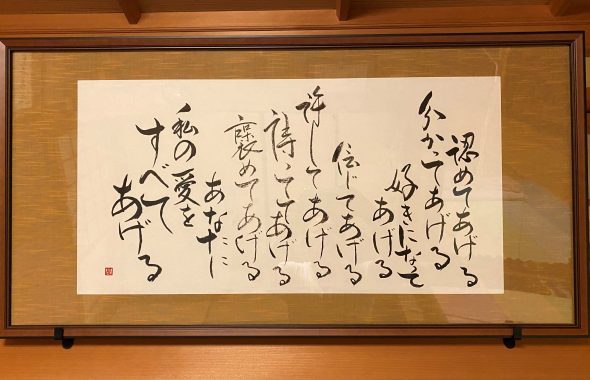 認めてあげる
分かってあげる
好きになって
あげる
信じてあげる
許してあげる
待ってあげる
褒めてあげる
あなたに
私の愛を
すべて
あげる